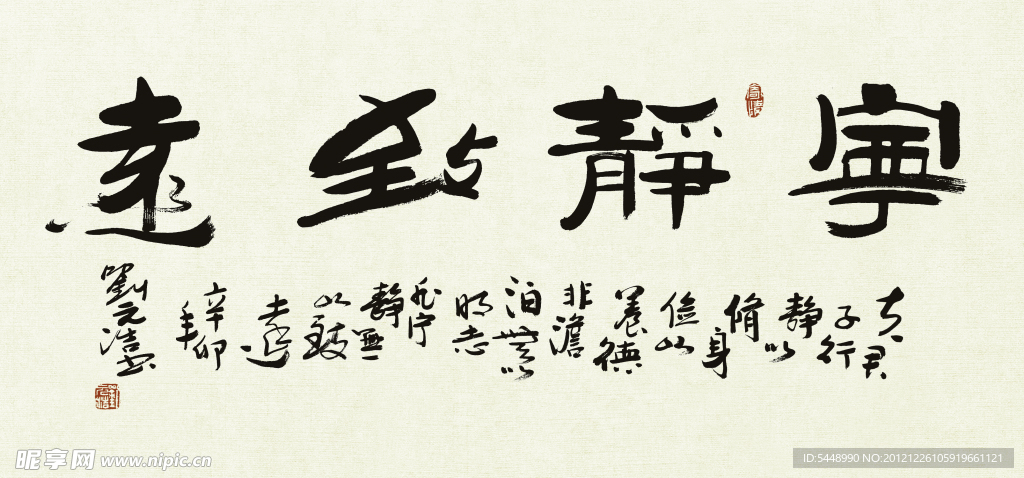 寧靜致遠
夫君
子行
静以
脩身
儉以
養德
非澹
泊無以
明志
非宁
静無
以致
遠
辛卯
年
劉元書
昵享网 www.nipic.cn
ID:5448990 NO:20121226105919661121